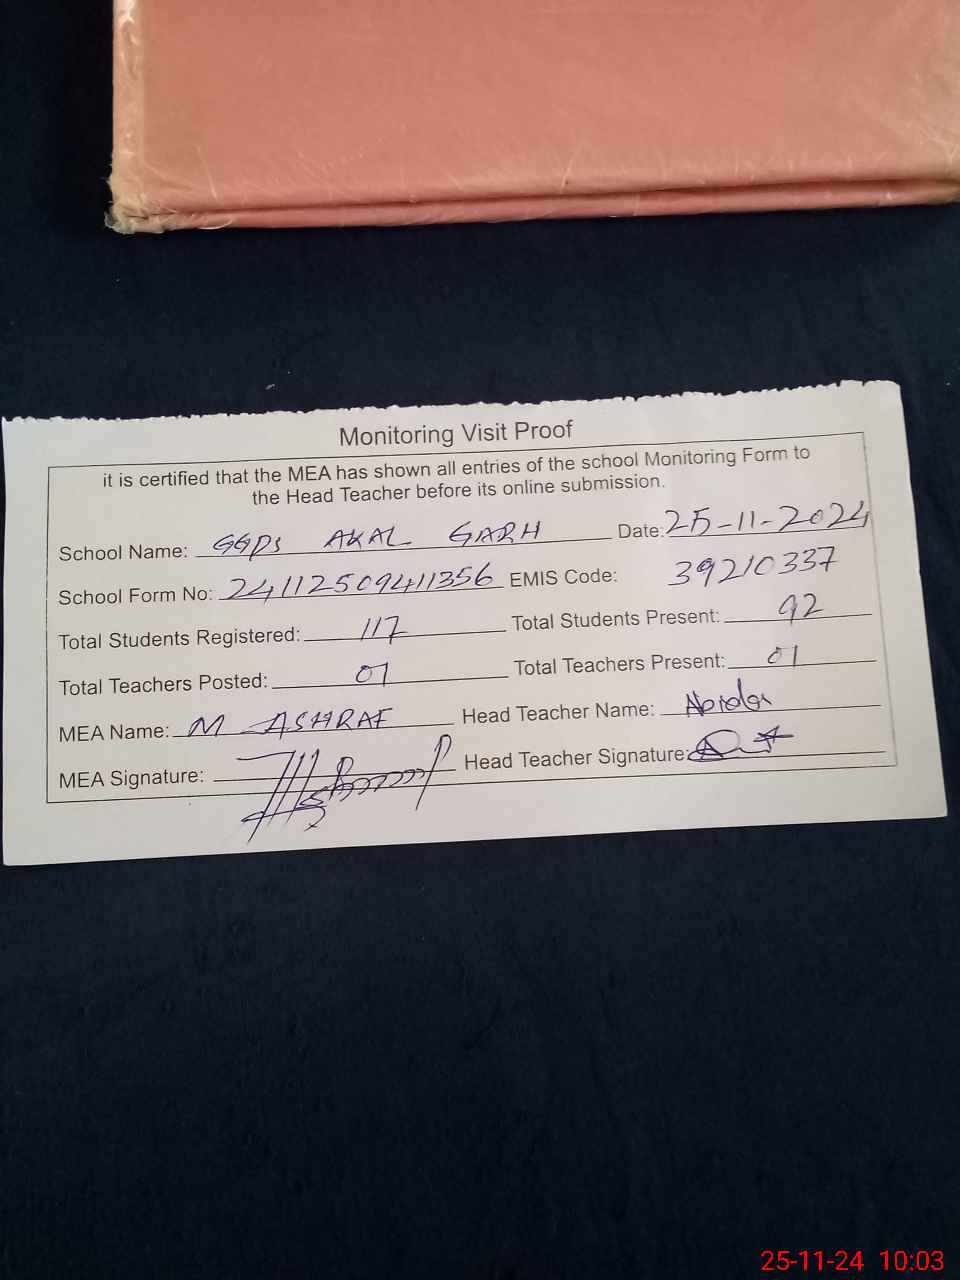 Monitoring Visit Proof
it is certified that the MEA has shown all entries of the school Monitoring Form to
the Head Teacher before its online submission.
School Name: GGPS AKAL GARH Date: 25-11-2024
School Form No: 24112509411356 EMIS Code: 39210337
Total Students Registered: 117 Total Students Present: 92
Total Teachers Posted: 01 Total Teachers Present: 01
MEA Name: M ASHRAF Head Teacher Name:
MEA Signature: Head Teacher Signature:
25-11-24 10:03